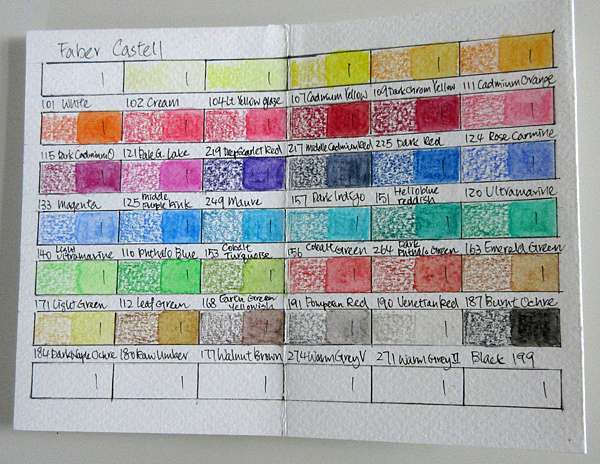 Faber Castell
101 White 102 Cream 104 Lt Yellow glaze 107 Cadmium Yellow 109 Dark Chrom Yellow 111 Cadmium Orange
115 Dark Cadmium O 121 Pale G. Lake 219 Deep Scarlet Red 217 Middle Cadmium Red 225 Dark Red 124 Rose Carmine
133 Magenta 125 Middle Purple Pink 249 Mauve 157 Dark Indigo 151 Helioblue reddish 120 Ultramarine
140 Light Ultramarine 110 Phthalo Blue 153 Cobalt Turquoise 156 Cobalt Green 264 Dark Phthalo Green 163 Emerald Green
171 Light Green 112 Leaf Green 168 Earth Green Yellowish 191 Pompeian Red 190 Venetian Red 187 Burnt Ochre
184 Dark Naple Ochre 180 Raw Umber 177 Walnut Brown 274 Warm Grey V 271 Warm Grey II Black 199